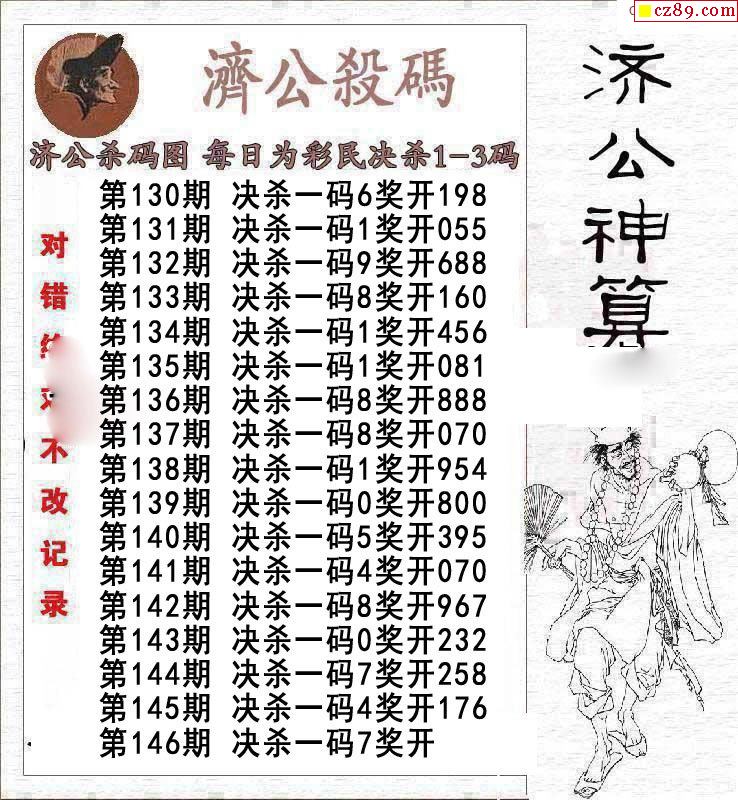 cz89.com
濟公殺碼
济公杀码图 每日为彩民决杀1-3码
第130期 决杀一码6奖开198
第131期 决杀一码1奖开055
第132期 决杀一码9奖开688
第133期 决杀一码8奖开160
第134期 决杀一码1奖开456
第135期 决杀一码1奖开081
第136期 决杀一码8奖开888
第137期 决杀一码8奖开070
第138期 决杀一码1奖开954
第139期 决杀一码0奖开800
第140期 决杀一码5奖开395
第141期 决杀一码4奖开070
第142期 决杀一码8奖开967
第143期 决杀一码0奖开232
第144期 决杀一码7奖开258
第145期 决杀一码4奖开176
第146期 决杀一码7奖开
对错绝对不改记录
济公神算